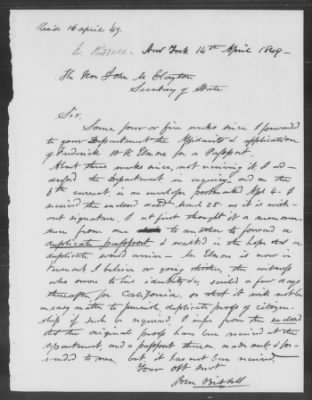 Recd 16 april 49.
New York 14th April 1849
The Hon John M Clayton
Secretary of State
Sir,
Some four or five weeks since I forwarded
to your Department the Affidavit & application
of Frederick W. Elmore for a Passport.
About three weeks since, not receiving it I ad-
dressed the Department an enquiry and on the
5th current, in an envelope postmarked Apl 4. I
received the enclosed dated March 28. as it is with-
out signature, I at first thought it a memoran-
dum from one to another to forward a
duplicate passport & waited in the hope that a
duplicate would arrive - Mr Elmore is now in
I believe or going thither, the witness
who swore to his identity &c, sailed a few days
thereafter for California, so that it will not be
an easy matter to furnish duplicate proofs of citizen-
ship if such be required, I infer from the enclosed
that the original proofs have been received at the
department, and a passport thereon made out & for-
warded to me, but it has not been received.
Your obt Servt
John Bissell